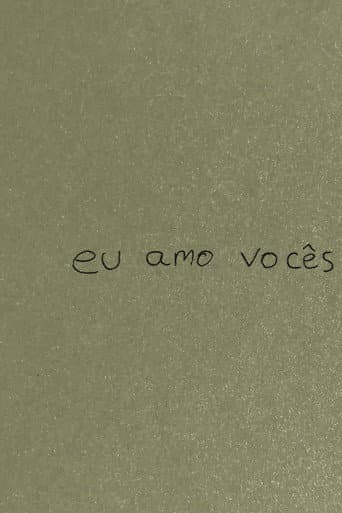 eu amo vocês